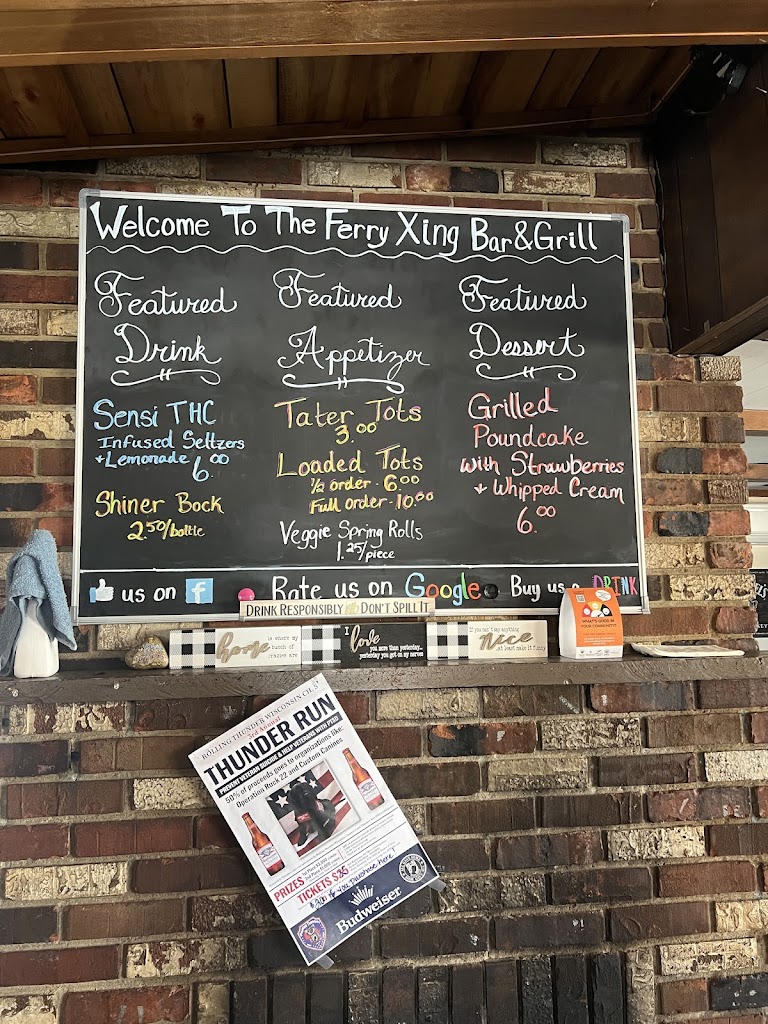 Welcome To The Ferry Xing Bar & Grill
Featured
Drink
Sensi THC
Infused Seltzers
+ Lemonade 6.00
Shiner Bock
2.50/bottle
Featured
Appetizer
Tater Tots
3.00
Loaded Tots
1/2 order - 6.00
Full order - 10.00
Veggie Spring Rolls
1.25/piece
Featured
Dessert
Grilled
Poundcake
with Strawberries
+ Whipped Cream
6.00
us on f Rate us on Google Buy us a DRINK
DRINK RESPONSIBLY DON'T SPILL IT
home is where my
bunch of
crazies are
I love
you more than yesterday...
yesterday you got on my nerves
If you can't say anything
nice
at least make it funny
WHAT'S GOOD IN
YOUR COMMUNITY?
ROLLING THUNDER WISCONSIN CH. 3
3rd Annual
THUNDER RUN
PREVENT VETERAN SUICIDE & HELP VETERANS WITH PTSD
50% of proceeds goes to organizations like:
Operation Ruck 22 and Custom Canines
PRIZES
TICKETS $25
Budweiser